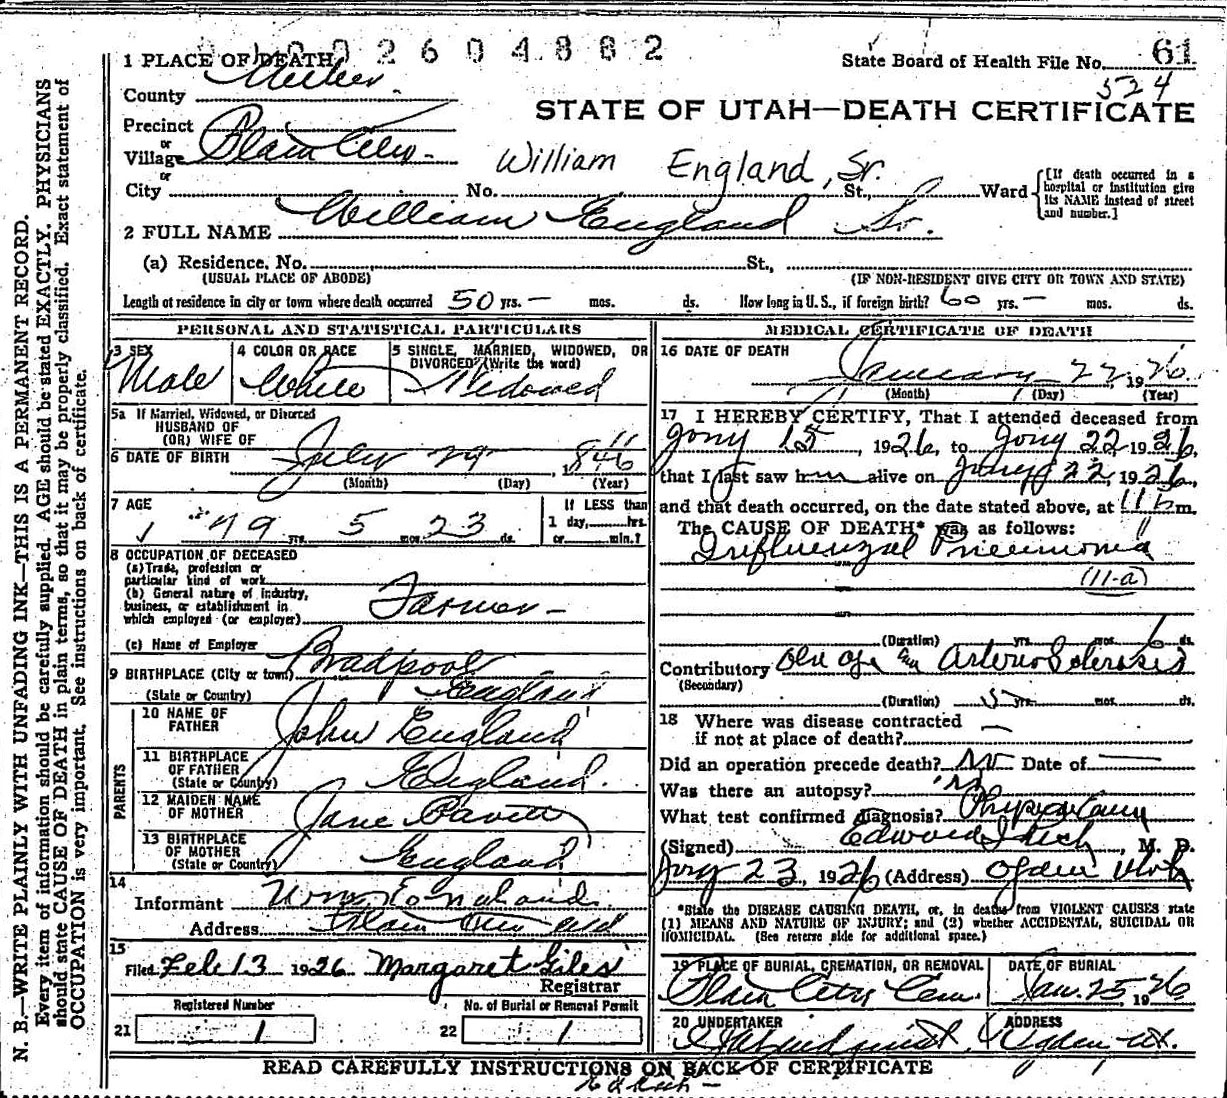 002604882
1 PLACE OF DEATH
State Board of Health File No. 61
524
County Weber
STATE OF UTAH—DEATH CERTIFICATE
Precinct
or
Village Plain City
or
William England, Sr.
City No. St., Ward
[If death occurred in a hospital or institution give its NAME instead of street and number.]
2 FULL NAME William England Sr.
(a) Residence, No. St.,
(USUAL PLACE OF ABODE) (IF NON-RESIDENT GIVE CITY OR TOWN AND STATE)
Length of residence in city or town where death occurred 50 yrs. — mos. ds. How long in U.S., if foreign birth? 60 yrs. — mos. ds.
PERSONAL AND STATISTICAL PARTICULARS
3 SEX Male
4 COLOR OR RACE White
5 SINGLE, MARRIED, WIDOWED, OR DIVORCED (Write the word) Widowed
5a If Married, Widowed, or Divorced
HUSBAND OF
(OR) WIFE OF
6 DATE OF BIRTH July 29, 1846
(Month) (Day) (Year)
7 AGE 79 yrs. 5 mos. 23 ds.
If LESS than
1 day, hrs.
or min.?
8 OCCUPATION OF DECEASED
(a) Trade, profession or
particular kind of work
(b) General nature of industry,
business, or establishment in
which employed (or employer) Farmer —
(c) Name of Employer
9 BIRTHPLACE (City or town) Bradpool
(State or Country) England
PARENTS
10 NAME OF
FATHER John England
11 BIRTHPLACE
OF FATHER
(State or Country) England.
12 MAIDEN NAME
OF MOTHER Jane Pavitt
13 BIRTHPLACE
OF MOTHER
(State or Country) England
14
Informant Wm England
Address Plain City
15
Filed Feb 13 1926 Margaret Giles
Registrar
Registered Number
21 1
No. of Burial or Removal Permit
22 1
MEDICAL CERTIFICATE OF DEATH
16 DATE OF DEATH
January 22 1926.
(Month) (Day) (Year)
17 I HEREBY CERTIFY, That I attended deceased from
Jany 15, 1926, to Jany 22 1926,
that I last saw him alive on Jany 22, 1926,
and that death occurred, on the date stated above, at 11 P m.
The CAUSE OF DEATH* was as follows:
Influenzal Pneumonia
(11-a)
(Duration) yrs. mos. ds.
Contributory Old age and Arterio Sclerosis
(Secondary)
(Duration) yrs. mos. ds.
18 Where was disease contracted
if not at place of death? —
Did an operation precede death? No Date of —
Was there an autopsy? No
What test confirmed diagnosis?
(Signed) Edward I Rich, M. D.
Jany 23, 1926 (Address) Ogden Utah
*State the DISEASE CAUSING DEATH, or, in deaths from VIOLENT CAUSES state
(1) MEANS AND NATURE OF INJURY; and (2) whether ACCIDENTAL, SUICIDAL OR
HOMICIDAL. (See reverse side for additional space.)
19 PLACE OF BURIAL, CREMATION, OR REMOVAL
Plain City Cem.
DATE OF BURIAL
Jan. 25 1926
20 UNDERTAKER
Lindquist
ADDRESS
Ogden Ut.
READ CAREFULLY INSTRUCTIONS ON BACK OF CERTIFICATE
N. B.—WRITE PLAINLY WITH UNFADING INK—THIS IS A PERMANENT RECORD.
Every item of information should be carefully supplied. AGE should be stated EXACTLY. PHYSICIANS
should state CAUSE OF DEATH in plain terms, so that it may be properly classified. Exact statement of
OCCUPATION is very important. See instructions on back of certificate.